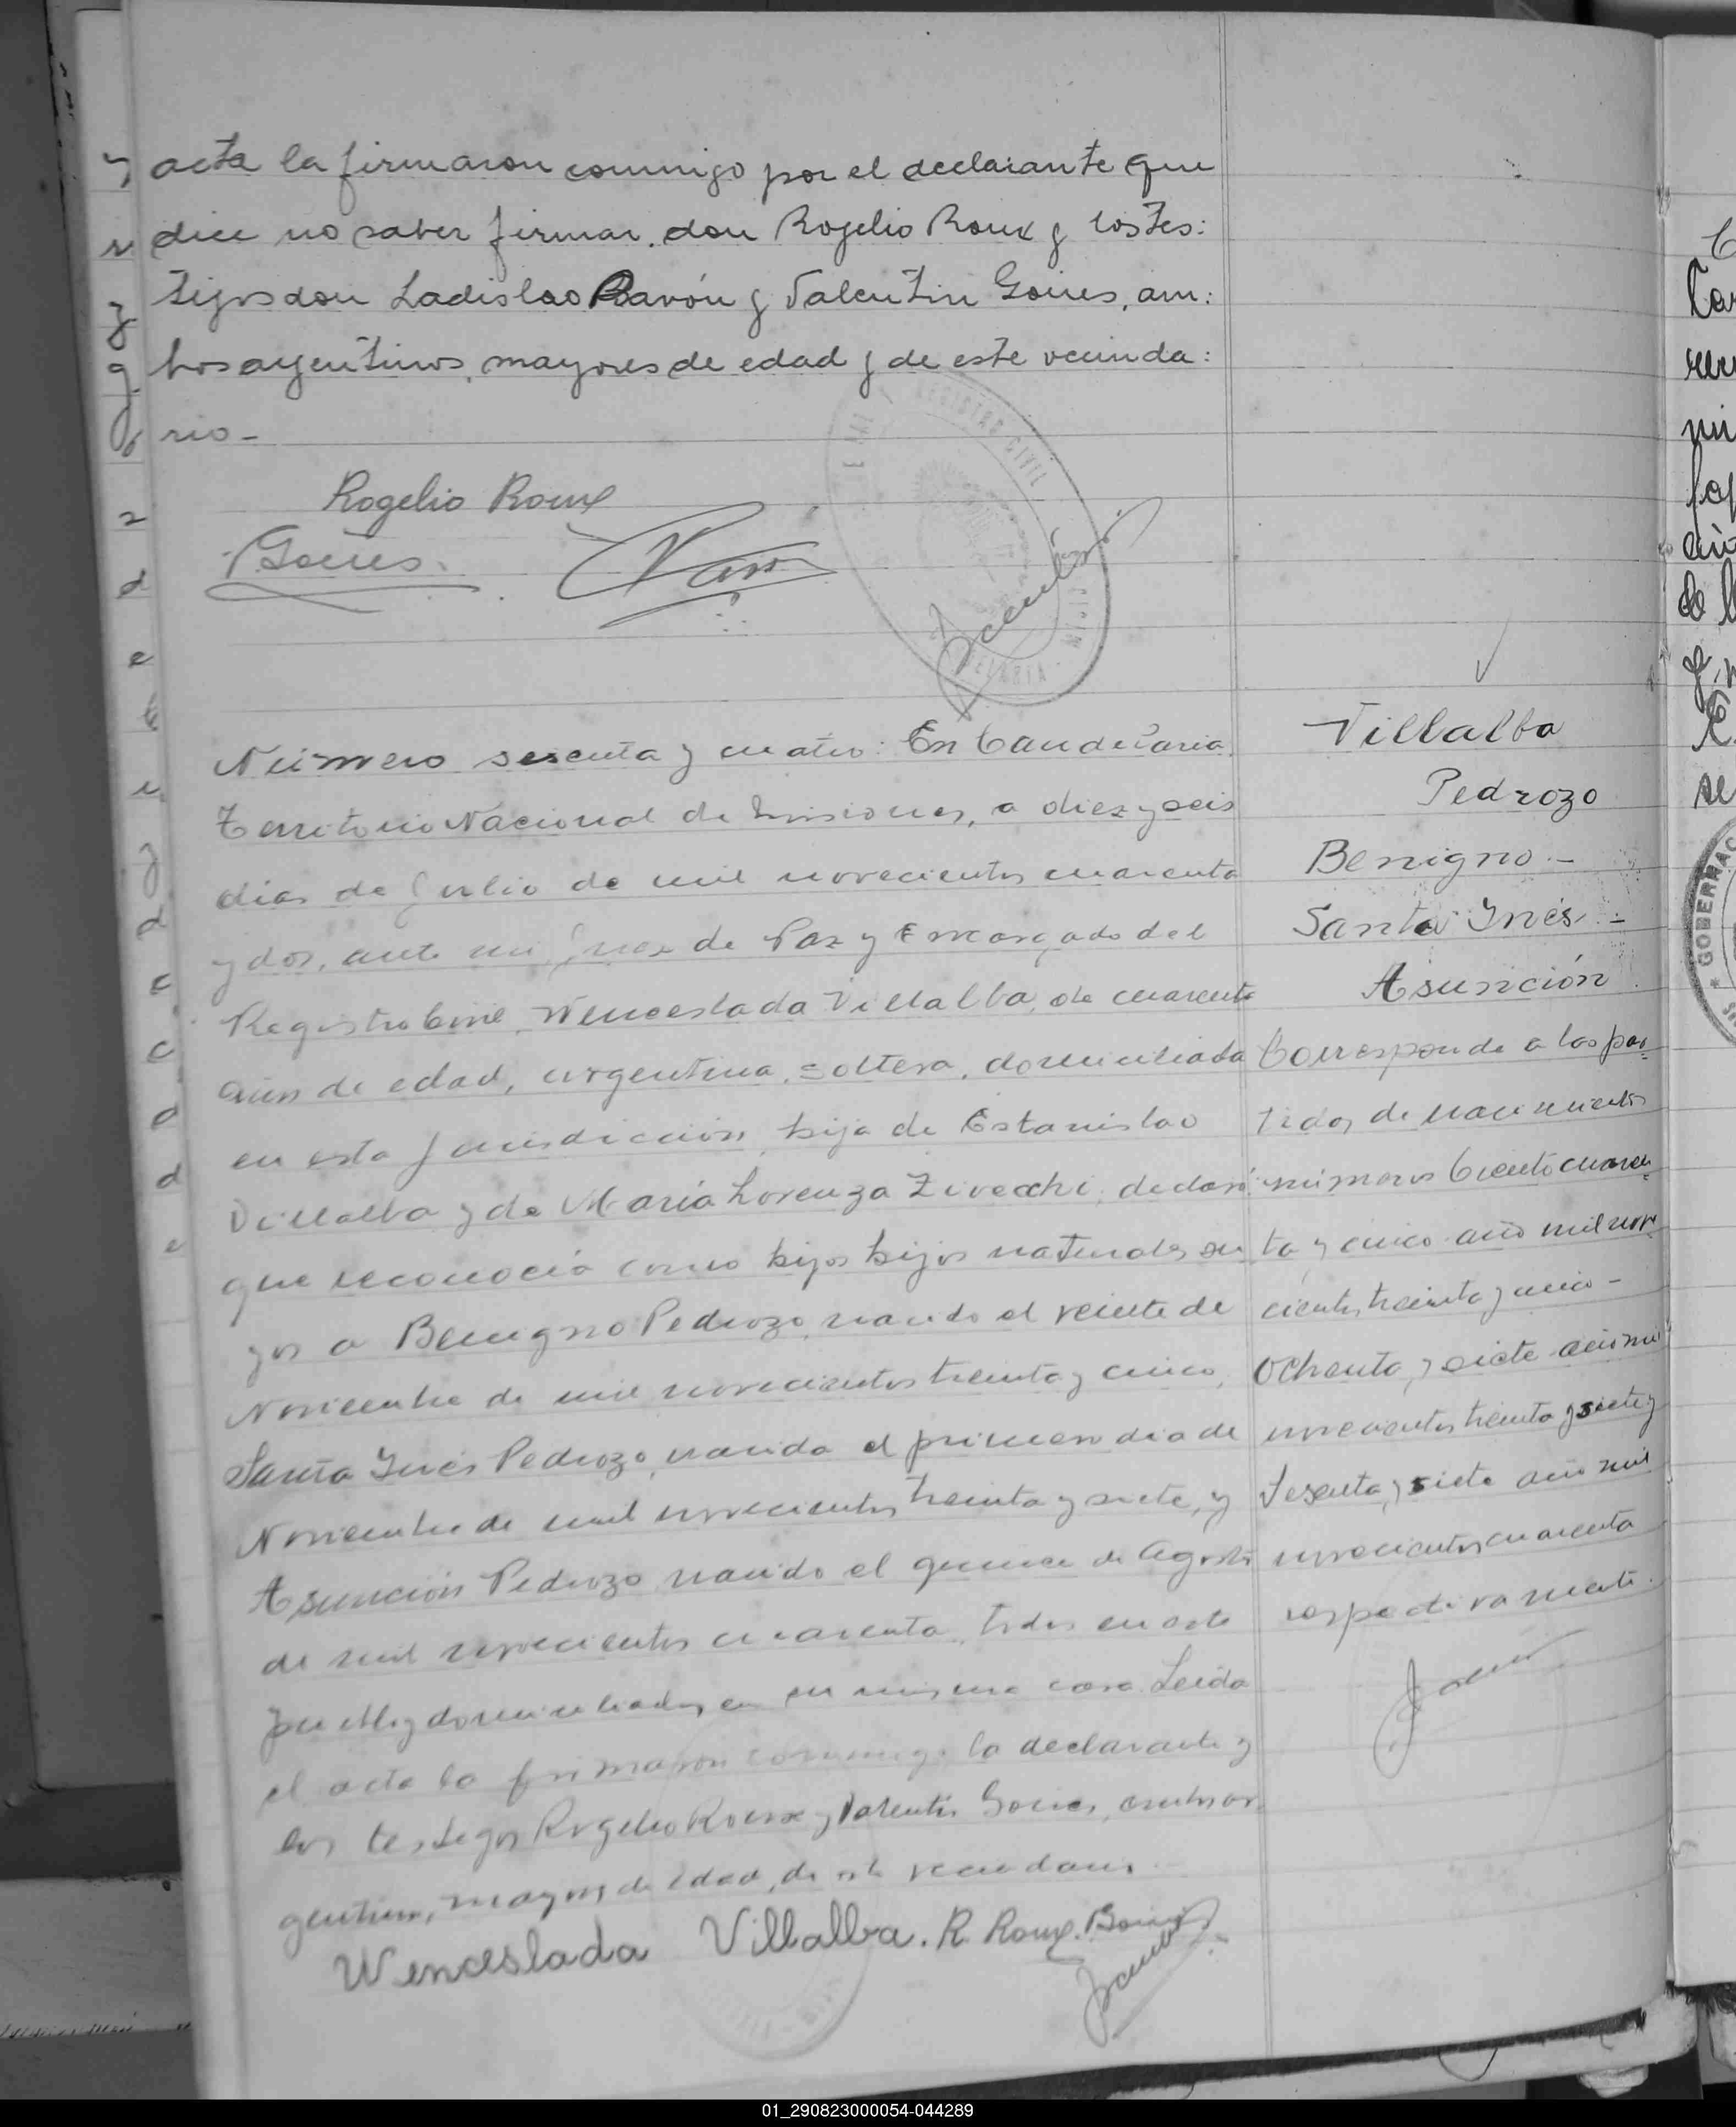 acta la firmaron conmigo por el declarante que
dice no saber firmar. don Rogelio Roux y los tes:
tigos don Ladislao Ravón y Valentin Goires, am:
bos argentinos, mayores de edad y de este vecinda:
rio -
Rogelio Roux
REGISTRO CIVIL
Número sesenta y cuatro: En Candelaria.
Territorio Nacional de Misiones, a diez y seis
dias de Julio de mil novecientos cuarenta
y dos, ante mi Juez de Paz y Encargado del
Registro Civil, Wenceslada Villalba, de cuarenta
años de edad, argentina, soltera, domiciliada
en esta Jurisdiccion, hija de Estanislao
Villalba y de María Lorenza Zivecchi, declaró:
que reconocia como hijos hijos naturales su
yos a Benigno Pedrozo, nacido el veinte de
Noviembre de mil novecientos treinta y cinco,
Santa Ynés Pedrozo, nacida el primero dia de
Noviembre de mil novecientos treinta y siete, y
Asunción Pedrozo nacido el quince de Agosto
de mil novecientos cuarenta, todos en este
pueblo y domiciliados en su misma casa. Leida
el acta la firmaron conmigo la declarante y
los testigos Rogelio Roux y Valentin Goires, ambos ar
gentinos, mayores de edad, de este vecindario
Wenceslada Villalba. R. Roux.
Villalba
Pedrozo
Benigno. -
Santa Ynés -
Asunción
Corresponde a las par
tidas de nacimientos
números Ciento cuaren
ta y cinco año mil nove
cientos treinta y cinco -
Ochenta y siete año mil
novecientos treinta y siete y
Sesenta y siete año mil
novecientos cuarenta
respectivamente.
GOBERNAC
01_290823000054-044289